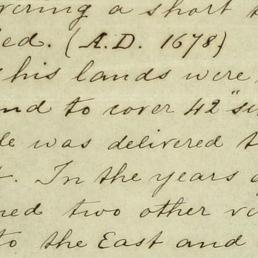 vering a short
ed. (A.D. 1678)
his lands were
nd to cover 42 "s
le was delivered t
t. In the years
ned two other v
to the East and